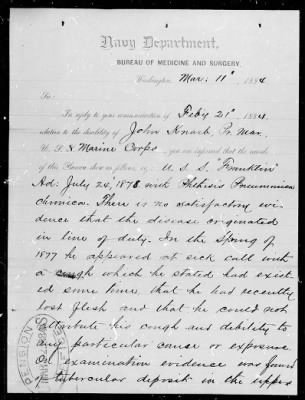 Navy Department,
BUREAU OF MEDICINE AND SURGERY,
Washington, Mar: 11" , 1884
Sir:
In reply to your communication of Feby 21st, 1884,
relative to the disability of John Knarb, Pr. Mar.
U. S. Marine Corps , you are informed that the records
of this Bureau show as follows, viz: U. S. S. "Franklin"
Ad: July 24, 1878 with Phthisis Pneumonica
chronica. There is no satisfactory evi-
dence that the disease originated
in line of duty. In the Spring of
1877 he appeared at sick call with
a cough which he stated had exist-
ed some time that he had recently
lost flesh and that he could not
attribute his cough and debility to
any particular cause or exposure.
On examination evidence was found
of tubercular deposit in the upper
PENSION